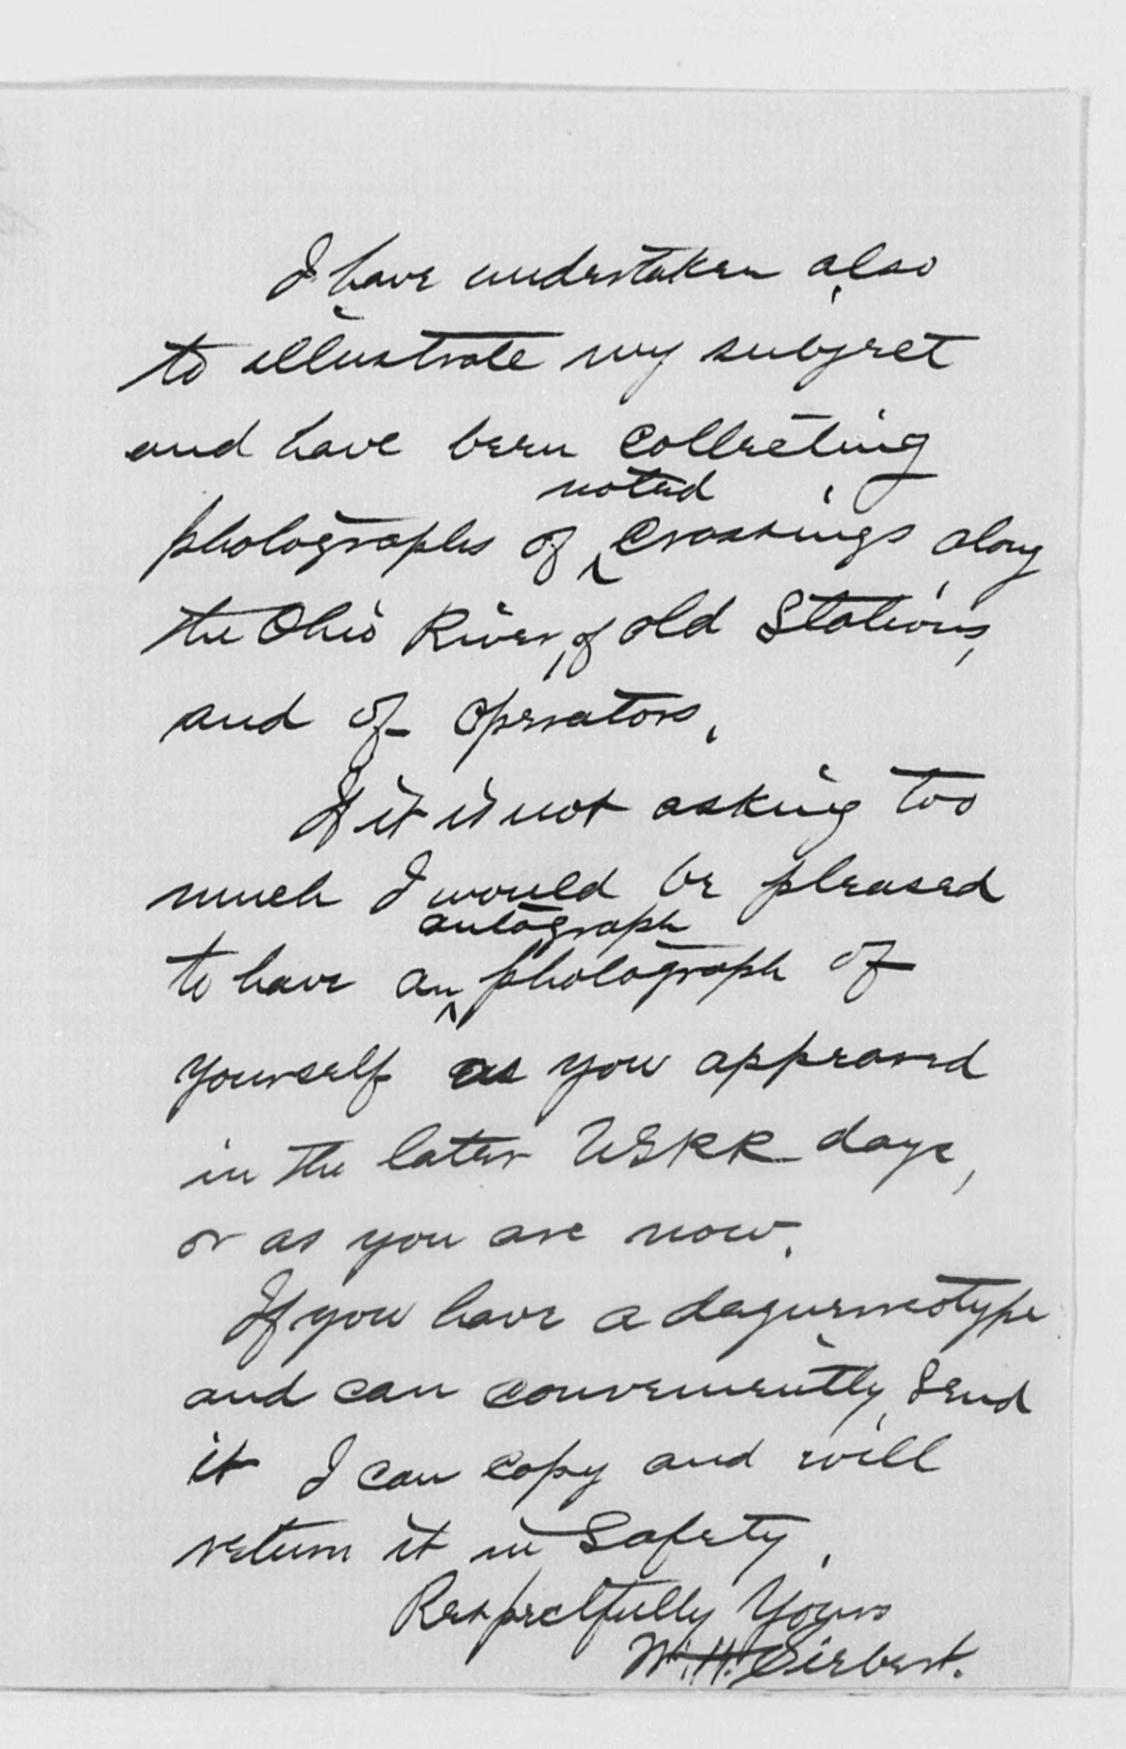 I have undertaken also
to illustrate my subject
and have been collecting
noted
photographs of ^ crossings along
the Ohio River, of old Stations,
and of operators.
If it is not asking too
much I would be pleased
autograph
to have an ^ photograph of
yourself as you appeared
in the later UGRR days,
or as you are now.
If you have a daguerreotype
and can conveniently send
it I can copy and will
return it in safety.
Respectfully Yours
W. H. Siebert.